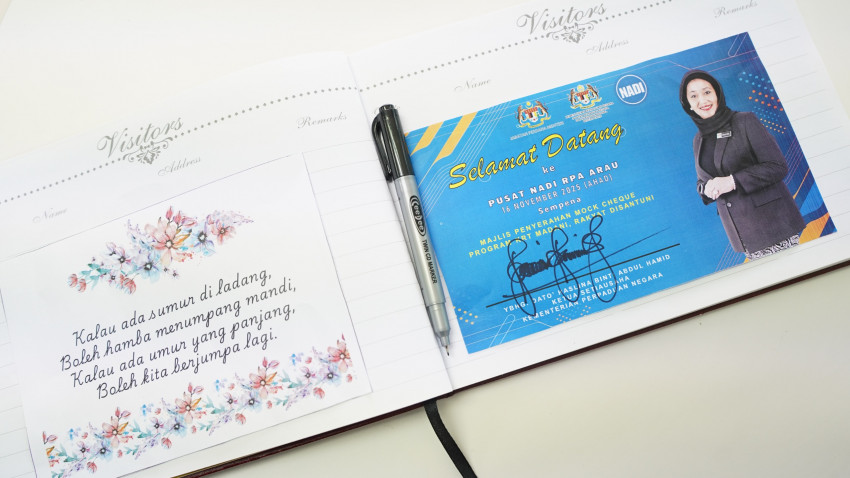 Visitors
Name
Address
Remarks
Kalau ada sumur di ladang,
Boleh hamba menumpang mandi,
Kalau ada umur yang panjang,
Boleh kita berjumpa lagi.
TWIN CD MARKER
Visitors
Name
Address
Remarks
NADI
Selamat Datang
ke
PUSAT NADI RPA ARAU
16 NOVEMBER 2025 (AHAD)
Sempena
MAJLIS PENYERAHAN MOCK CHEQUE
PROGRAM BT MADANI, RAKYAT DISANTUNI
YBHG. DATO' HASLINA BINTI ABDUL HAMID
KETUA SETIAUSAHA
KEMENTERIAN PERPADUAN NEGARA